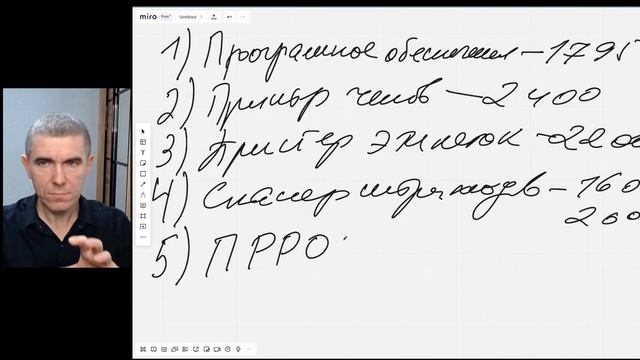 miro
Free
Untitled
1) Программное обеспечения - 1795
2) Принтер чеков - 2400
3) Принтер этикеток - 2200
4) Сканер штрихкодов - 160
200
5) ПРРО